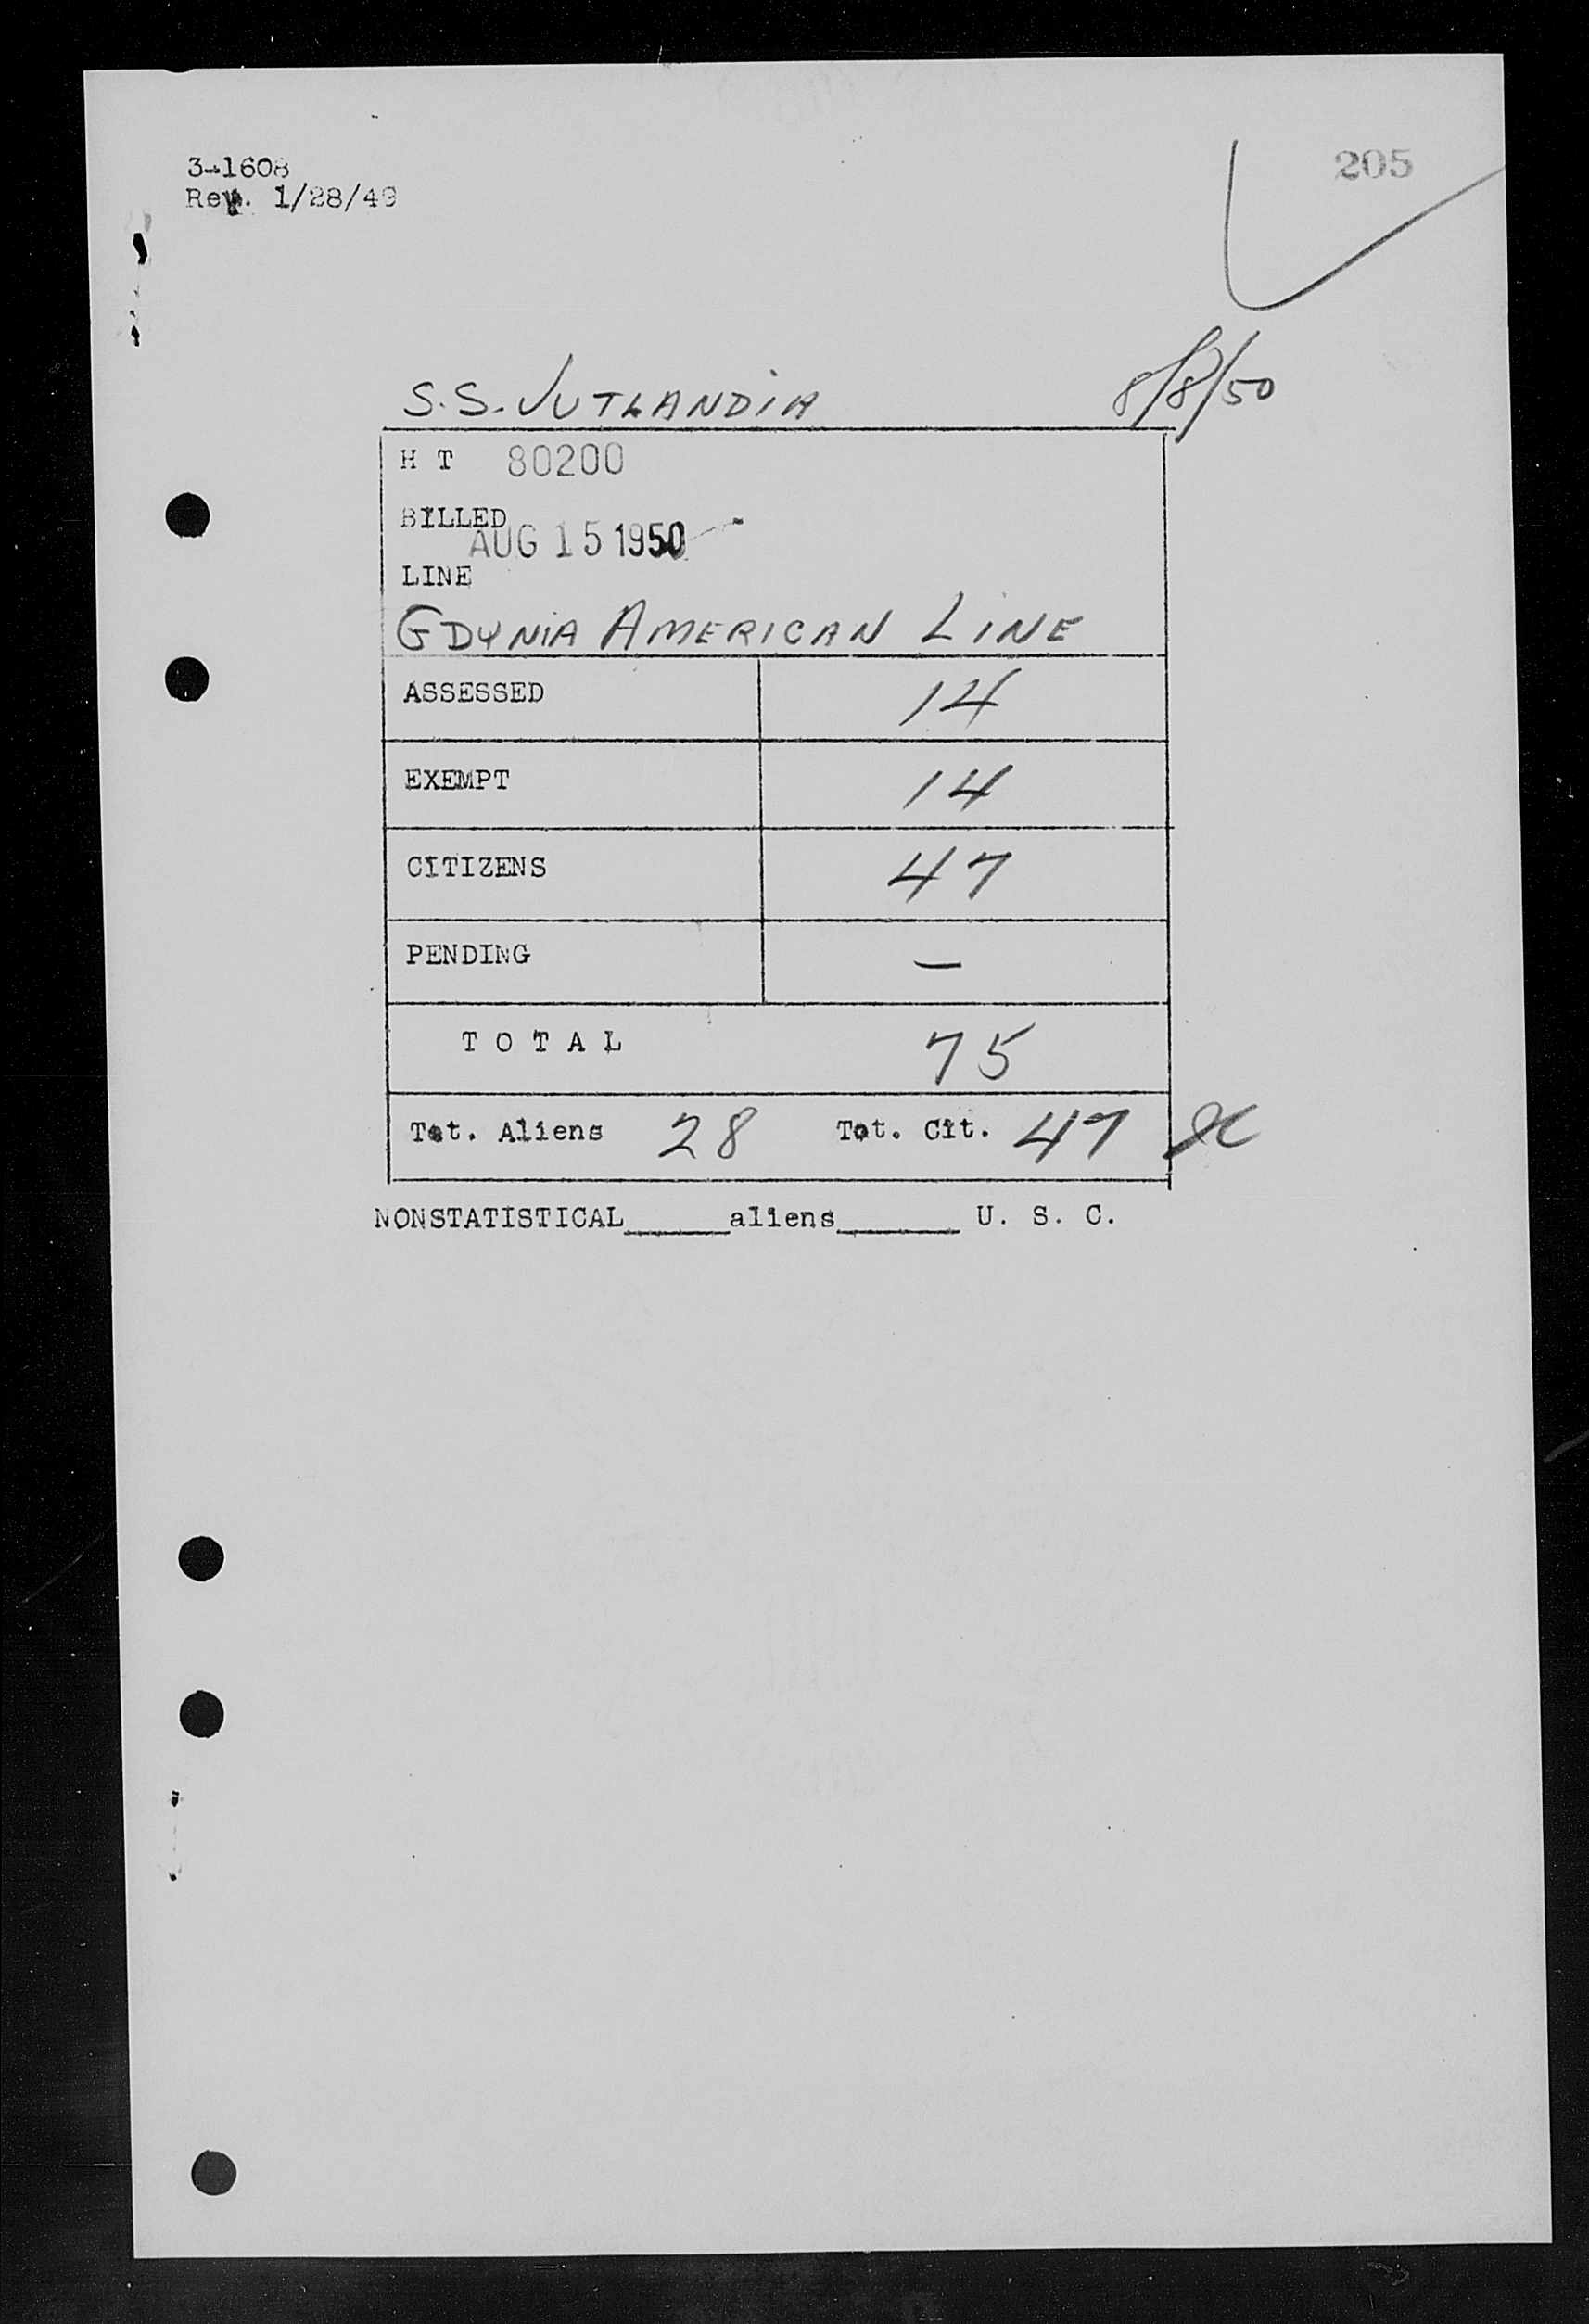 3-1608
205
Rev. 1/28/49
S.S. JUTLANDIA 8/8/50
H T 80200
BILLED
AUG 15 1950
LINE
GDYNIA AMERICAN LINE
ASSESSED 14
EXEMPT 14
CITIZENS 47
PENDING —
T O T A L 75
Tot. Aliens 28 Tot. Cit. 47
NONSTATISTICAL______aliens_______ U. S. C.